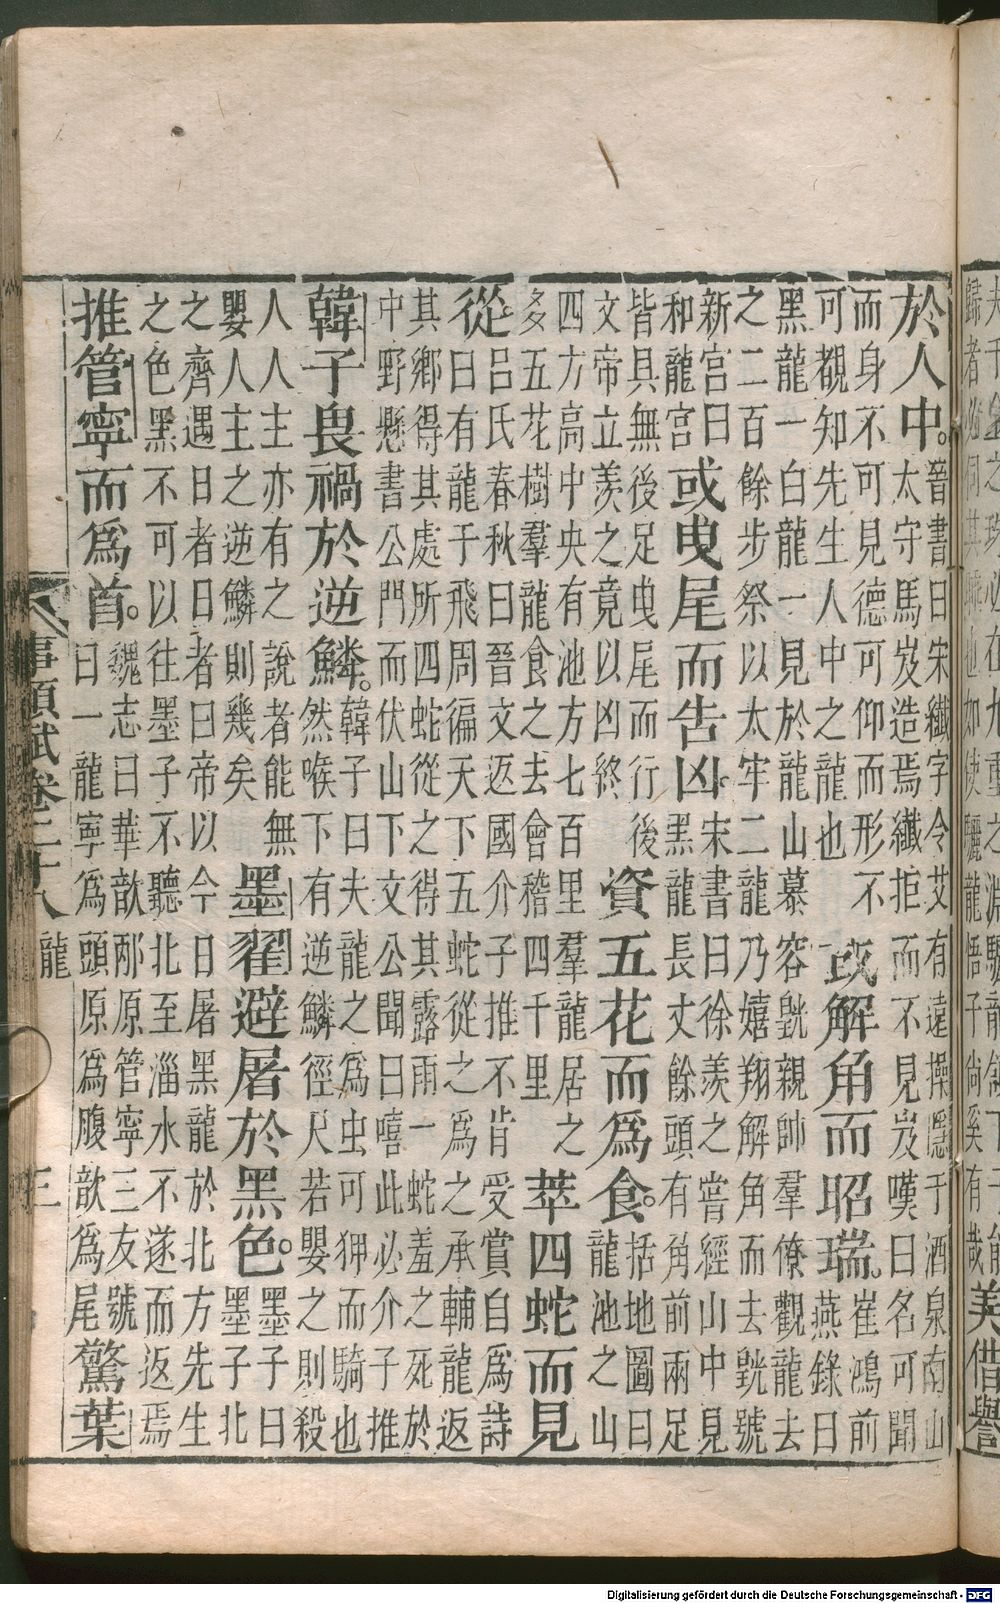 夫千金之珠必在九重之淵驪龍頷下子能
歸者必伺其睡也如使驪龍悟子尚奚有哉
美偕譽
於人中。
晉書曰宋纖字令艾有遠操隱于酒泉南山
太守馬岌造焉纖拒而不見岌嘆曰名可聞
而身不可見德可仰而形不
可覩知先生人中之龍也
或解角而昭瑞。
崔鴻前
燕錄曰
黑龍一白龍一見於龍山慕容皝親帥羣僚觀龍去
之二百餘步祭以太牢二龍乃嬉翔解角而去皝號
新宮曰
和龍宮
或曳尾而告凶
宋書曰徐羨之嘗經山中見
黑龍長丈餘頭有角前兩足
皆具無後足曳尾而行後
文帝立羨之竟以凶終
資五花而爲食。
括地圖曰
龍池之山
四方高中央有池方七百里羣龍居之
多五花樹羣龍食之去會稽四千里
萃四蛇而見
從
呂氏春秋曰晉文返國介子推不肯受賞自爲詩
曰有龍于飛周徧天下五蛇從之爲之承輔龍返
其鄉得其處所四蛇從之得其露雨一蛇羞之死於
中野懸書公門而伏山下文公聞曰嘻此必介子推
韓子畏禍於逆鱗。
韓子曰夫龍之爲虫可狎而騎也
然喉下有逆鱗徑尺若嬰之則殺
人人主亦有之說者能無
嬰人主之逆鱗則幾矣
墨翟避屠於黑色。
墨子曰
墨子北
之齊遇日者日者曰帝以今日屠黑龍於北方先生
之色黑不可以往墨子不聽北至淄水不遂而返焉
推管寧而爲首。
魏志曰華歆邴原管寧三友號
曰一龍寧爲頭原爲腹歆爲尾
驚葉
事類賦卷二十八 龍 三
Digitalisierung gefördert durch die Deutsche Forschungsgemeinschaft - DFG